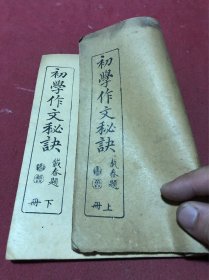 初學作文秘訣
春題
上冊
初學作文秘訣
春題
下冊